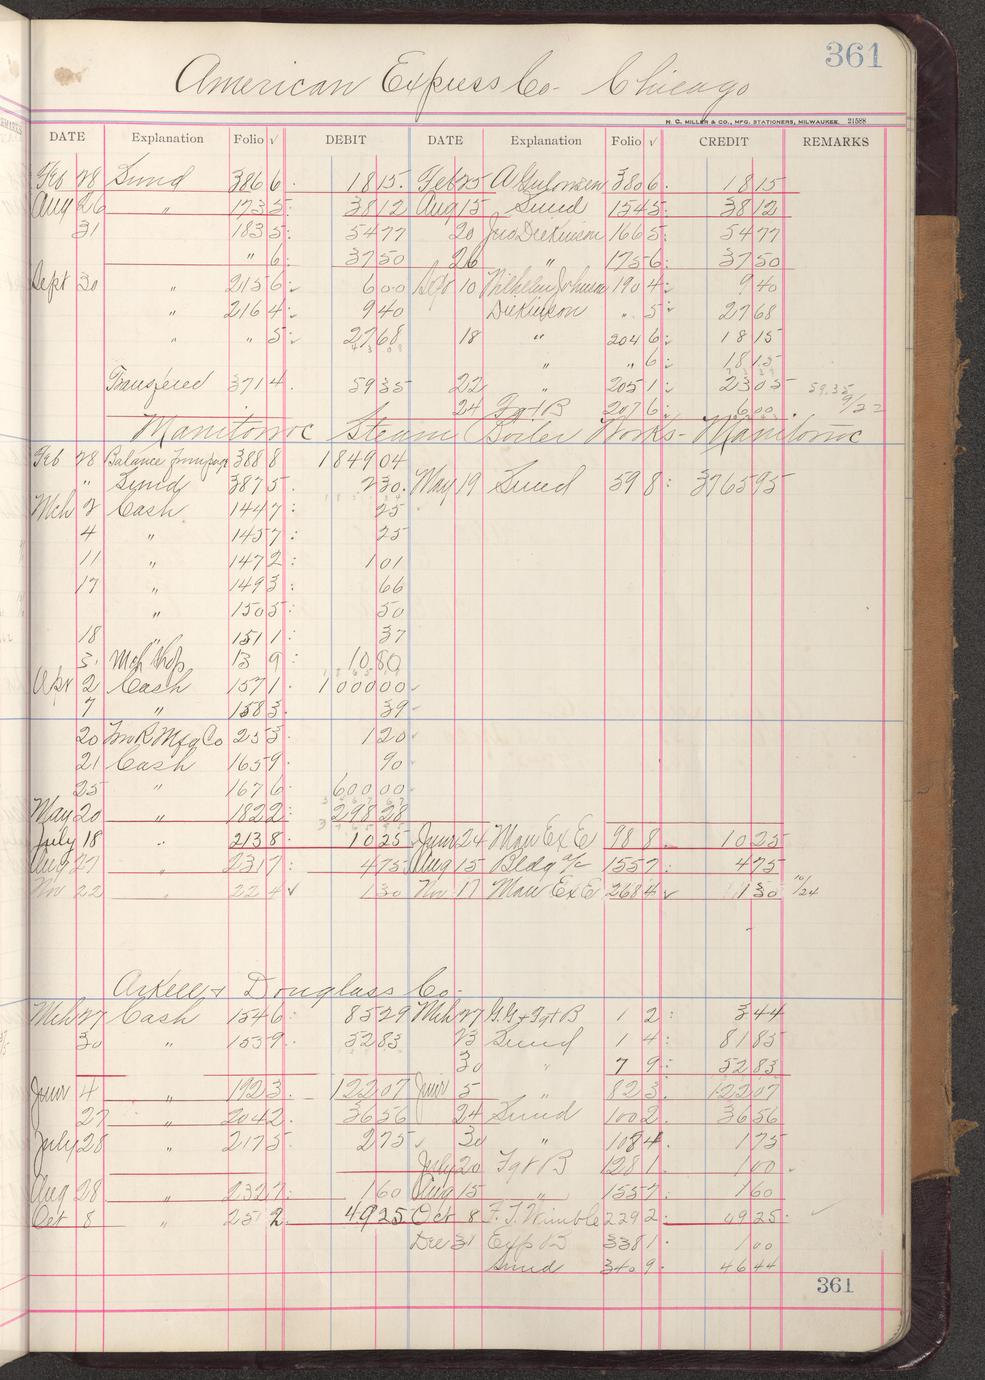 361
American Express Co- Chicago
H. C. MILLER & CO., MFG. STATIONERS, MILWAUKEE. 21588
DATE Explanation Folio √ DEBIT DATE Explanation Folio √ CREDIT REMARKS
Feb 28 Sund 386 6 18 15 Feb 25 380 6 18 15
Aug 26 " 173 5 38 12 Aug 15 Sund 154 5 38 12
31 183 5 54 77 20 Jno Dickinson 166 5 54 77
" 6 37 50 26 " 175 6 37 50
Sept 30 " 215 6 6 00 Sept 10 190 4 9 40
" 216 4 9 40 Dickinson " 5 27 68
" " 5 27 68 18 " 204 6 18 15
" " 6 18 15
Transfered 371 4 59 35 22 " 205 1 23 05 59.35
24 Fgt B 207 6 6 00 9/22
Manitowoc Steam Boiler Works- Manitowoc
Feb 28 Balance from page 388 8 1849 04
" Sund 387 5 2 30 May 19 Sund 59 8 3765 95
Mch 2 Cash 144 7 25
4 " 145 7 25
11 " 147 2 1 01
17 " 149 3 66
" 150 5 50
18 " 151 1 37
31 Mch Shop 13 9 10 80
Apr 2 Cash 157 1 1000 00
7 " 158 3 39
20 Mfg Co 25 3 1 20
21 Cash 165 9 90
25 " 167 6 600 00
May 20 " 182 2 298 28
July 18 " 213 8 10 25 June 24 Man Ex E 98 8 10 25
Aug 27 " 231 7 4 75 Aug 15 Bldg a/c 155 7 4 75
Nov 22 " 22 4 √ 1 30 Nov 17 Man Ex E 268 4 √ 1 30 10/24
Arkell & Douglass Co-
Mch 27 Cash 154 6 85 29 Mch 27 G.G + Fgt B 1 2 3 44
30 " 153 9 52 83 23 Sund 1 4 81 85
30 " 7 9 52 83
June 4 " 192 3 122 07 June 5 " 82 3 122 07
27 " 204 2 36 56 24 Sund 100 2 36 56
July 28 " 217 5 2 75 30 " 108 4 1 75
July 20 Fgt B 128 1 1 00
Aug 28 " 232 7 1 60 Aug 15 " 155 7 1 60
Oct 8 " 251 2 49 25 Oct 8 F. J. Wimble 229 2 49 25
Dec 31 Exp B 338 1 1 00
Sund 340 9 46 44
361